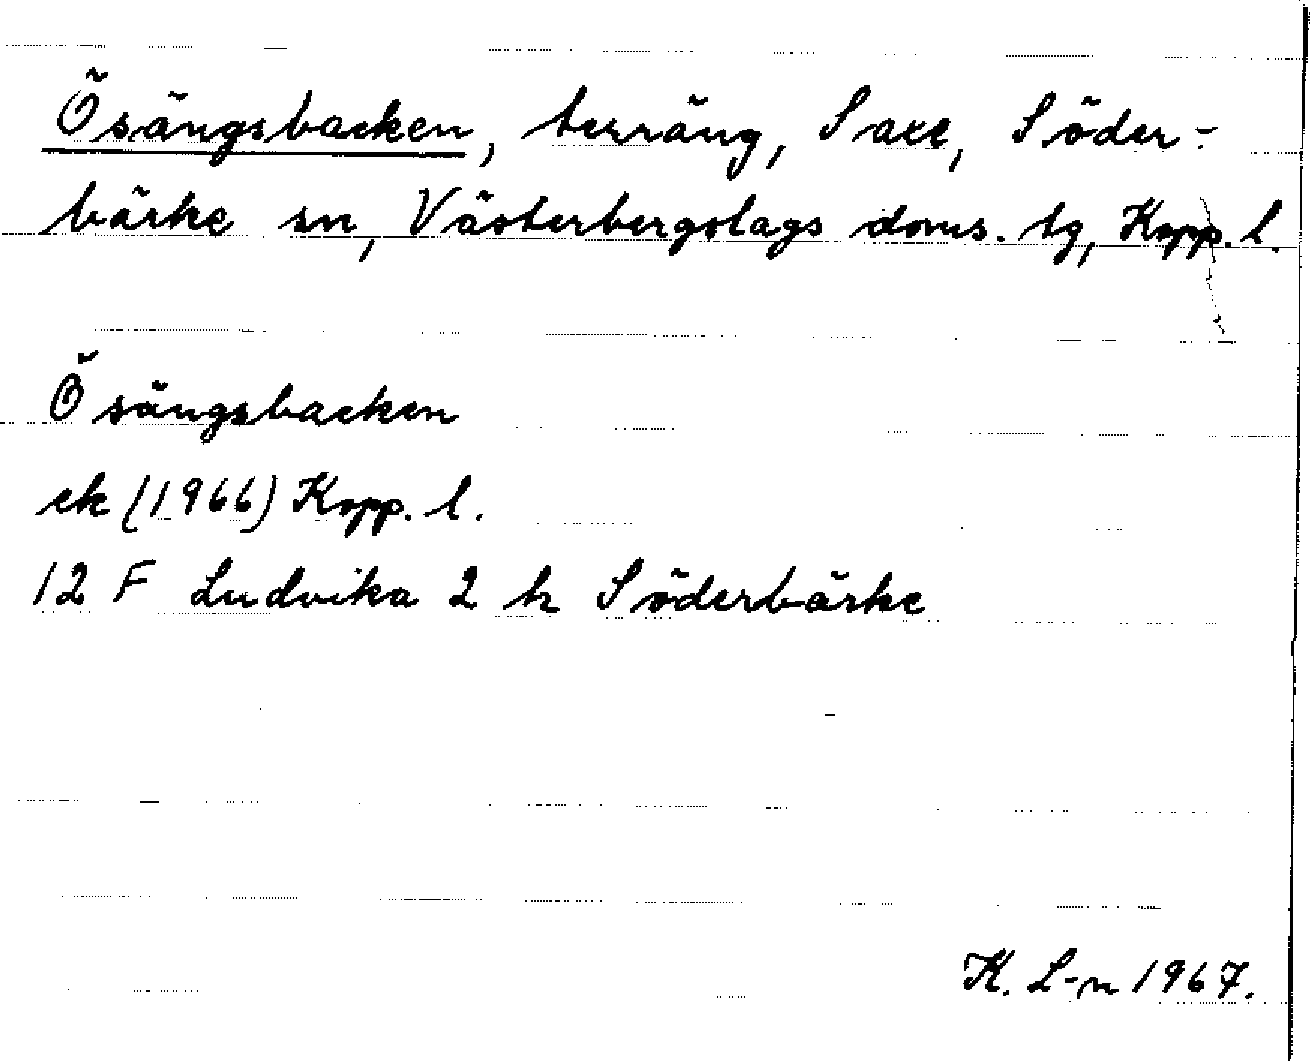 Ösängsbacken, terräng, Saxe, Söder-
bärke sn, Västerbergslags doms. tg, Kopp. l.
Ösängsbacken
ek (1966) Kopp. l.
12 F Ludvika 2 h Söderbärke
K. L-n 1967.